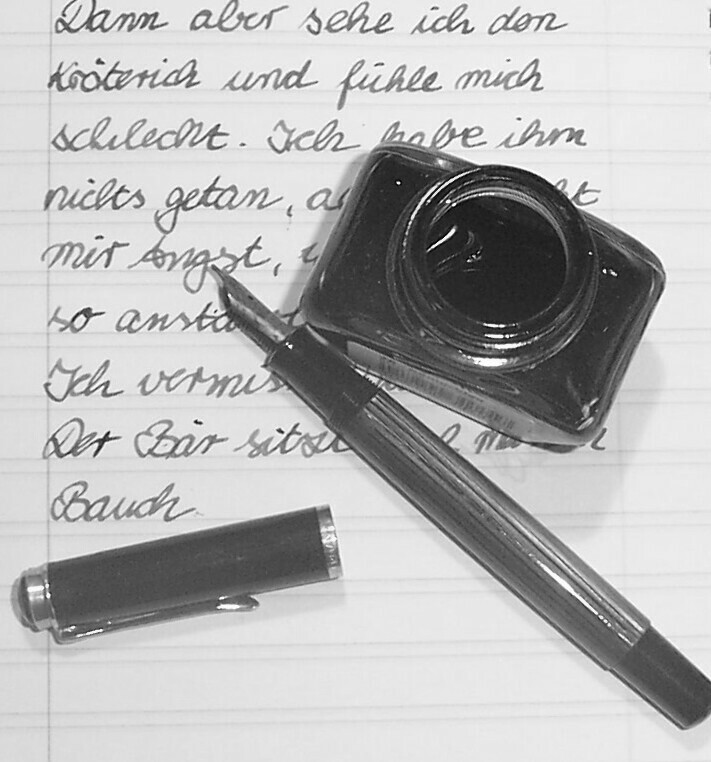 Dann aber sehe ich den
Kröterich und fühle mich
schlecht. Ich habe ihm
nichts getan,
mir Angst,
so
Ich
Der Bär sitzt
Bauch.